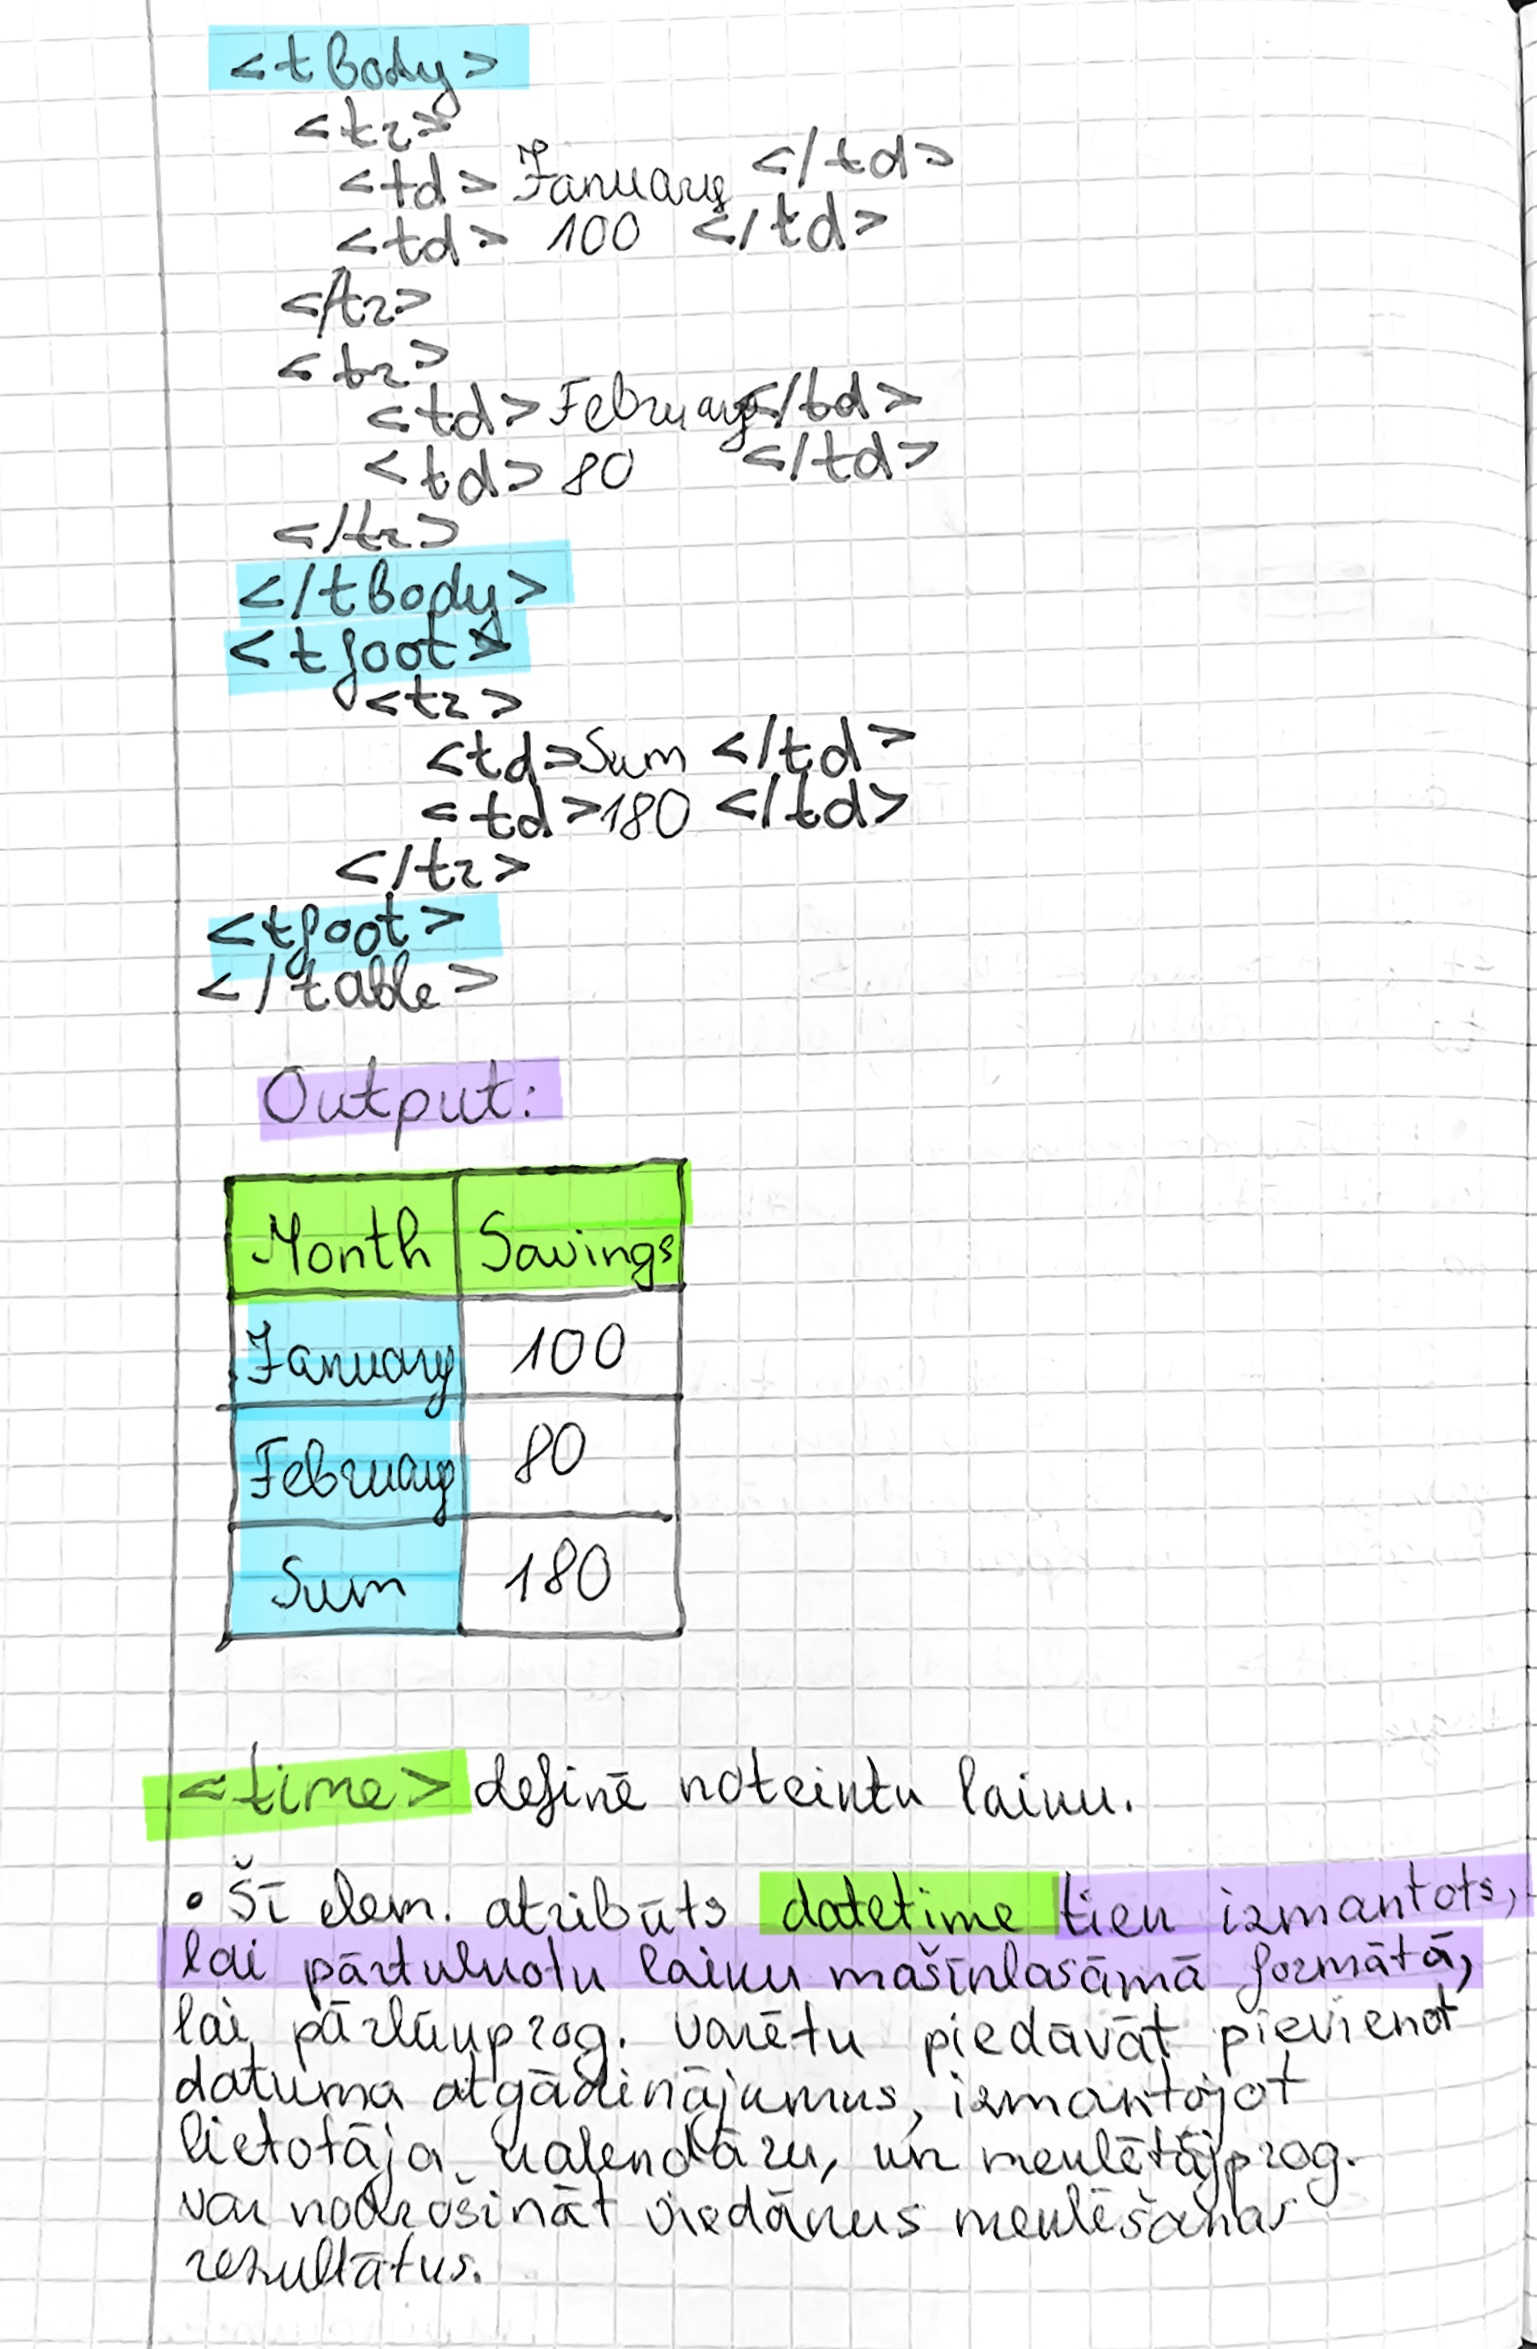 <tbody>
<tr>
<td> January </td>
<td> 100 </td>
</tr>
<tr>
<td> February </td>
<td> 80 </td>
</tr>
</tbody>
<tfoot>
<tr>
<td> Sum </td>
<td> 180 </td>
</tr>
<tfoot>
</table>
Output:
Month Savings
January 100
February 80
Sum 180
<time> definē noteiktu laiku.
• Šī elem. atribūts datetime tiek izmantots,
lai pārtulkotu laiku mašīnlasāmā formātā,
lai pārlūkprog. varētu piedāvāt pievienot
datuma atgādinājumus, izmantojot
lietotāja kalendāru, un meklētājprog.
var nodrošināt viedākus meklēšanas
rezultātus.